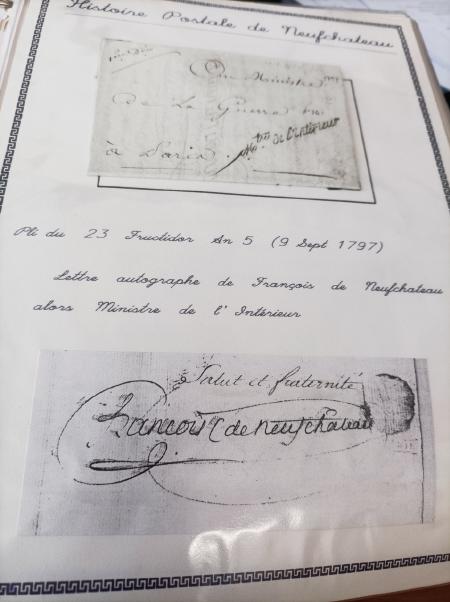 Histoire Postale de Neufchateau
Au Ministre
De La Guerre
à Paris
de l'intérieur
Pli du 23 Fructidor An 5 (9 Sept 1797)
Lettre autographe de François de Neufchateau
alors Ministre de l' Intérieur
Salut et fraternité
François (de neufchateau